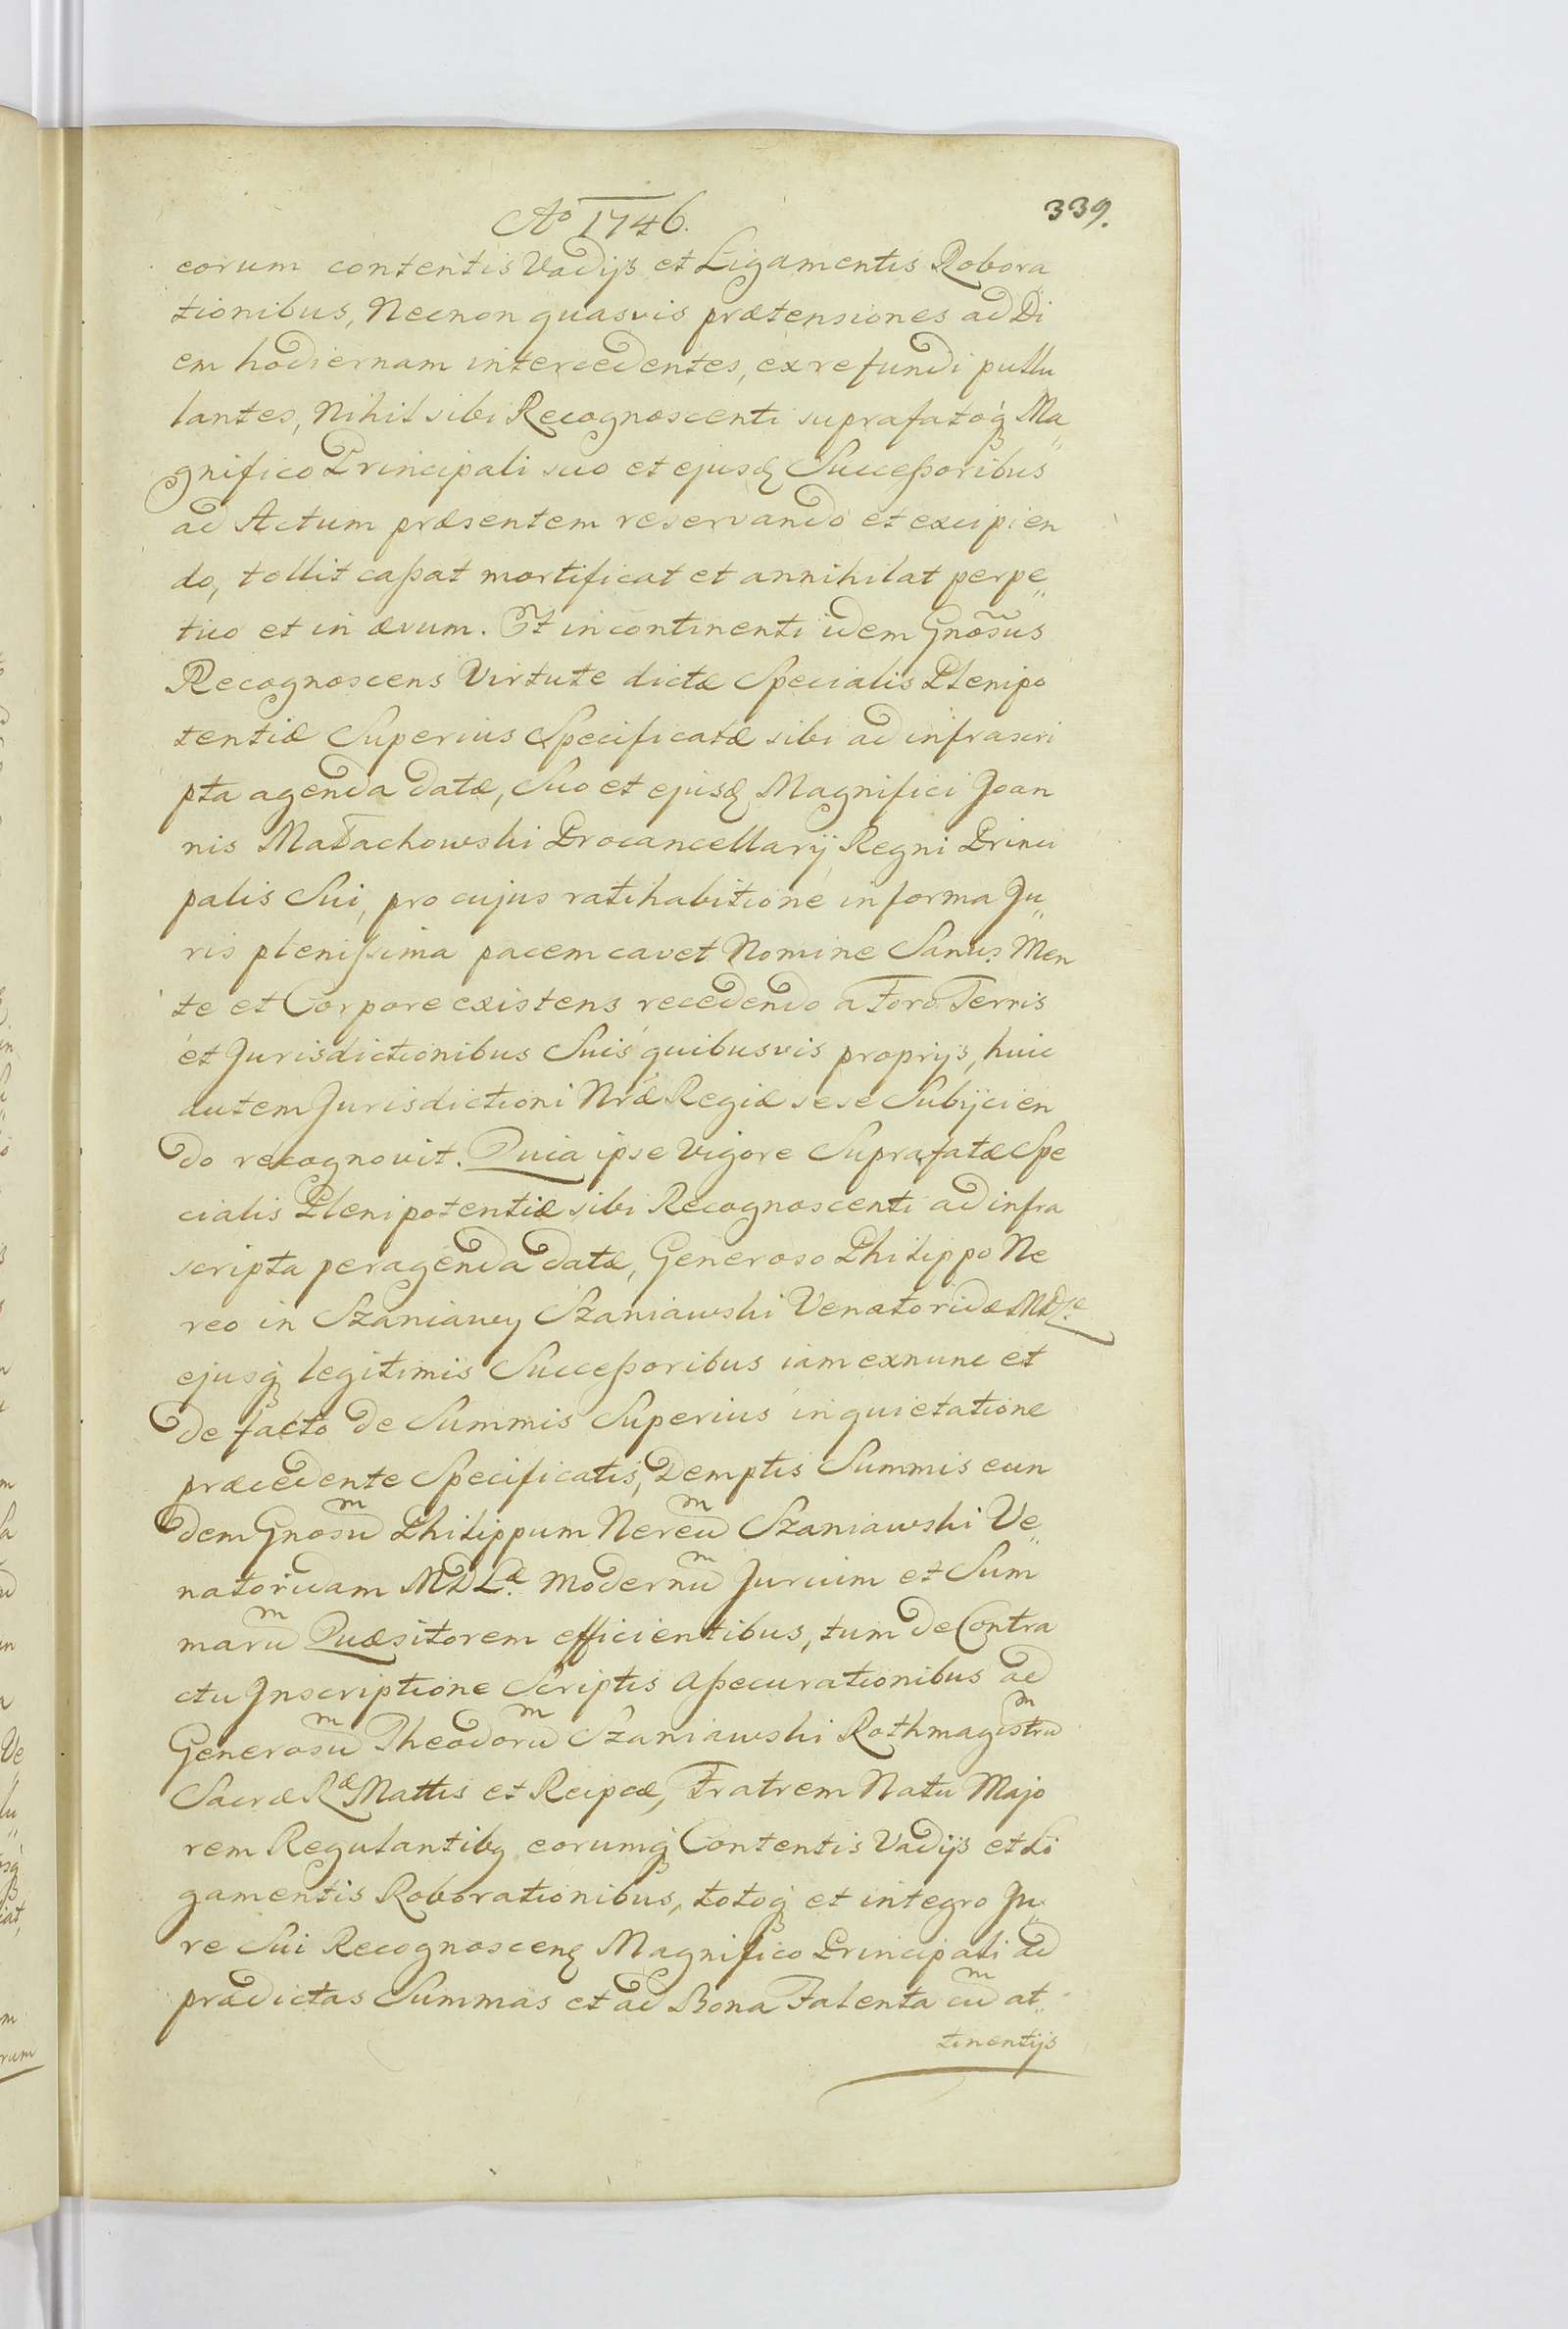 Ao 1746.
339.
eorum contentis Vadijs et Ligamentis Robora
tionibus, Necnon quasvis prætensiones ad Di
em hodiernam intercedentes, ex re fundi pullu
lantes, Nihil sibi Recognoscenti suprafatoq Ma„
gnifico Principali suo et ejusd Successoribus
ad Actum præsentem reservando et excipien
do, tollit cassat mortificat et annihilat perpe„
tuo et in ævum. Et incontinenti idem Gnosus
Recognoscens Virtute dictæ Specialis Plenipo
tentiæ Superius Specificatæ sibi ad infrascri
pta agenda datæ, Suo et ejusd Magnifici Joan
nis Małachowski Procancellarij Regni Princi
palis Sui, pro cujus ratihabitione in forma Ju„
ris plenissima pacem cavet Nomine Sanus Men
te et Corpore existens recedendo a Foro Terris
et Jurisdictionibus Suis quibusvis proprijs, huic
autem Jurisdictioni Nræ Regiæ sese Subijcien
do recognovit. Quia ipse vigore Suprafatæ Spe
cialis Plenipotentiæ sibi Recognoscenti ad infra
scripta peragenda datæ, Generoso Philippo Ne
reo in Szaniawy Szaniawski Venatoridæ MDLæ
ejusq legitimis Successoribus iam exnunc et
de facto de Summis Superius in quietatione
præcedente Specificatis, Demptis Summis eun
dem Gnosum Philippum Nereum Szaniawski Ve„
natoridam MDLæ modernum Jurium et Sum
marum Quæsitorem efficientibus, tum de Contra
ctu Inscriptione Scriptis Assecurationibus ad
Generosum Theodorum Szaniawski Rothmagistrum
Sacræ Ræ Mattis et Reipcæ, Fratrem Natu Majo
rem Regulantibq eorumq Contentis Vadijs et Li
gamentis Roborationibus, totoq et integro Ju„
re Sui Recognoscen Magnifico Principali ad
prædictas Summas et ad Bona Falenta cum at„
tinentijs